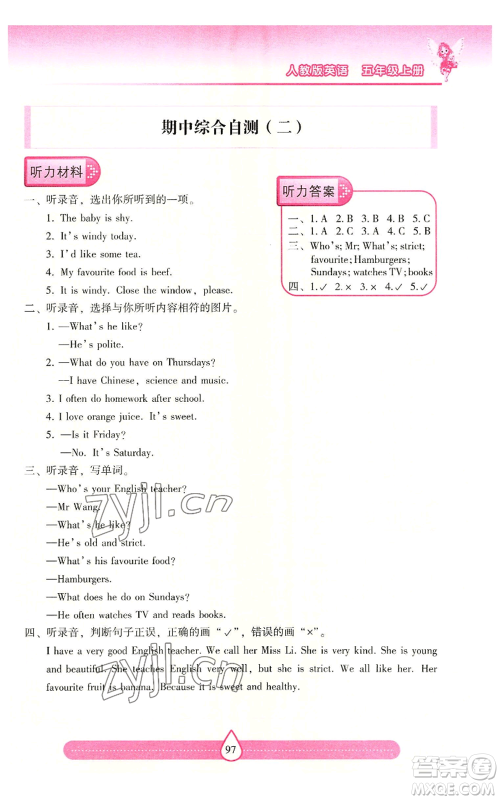 人教版英语 五年级上册
期中综合自测（二）
听力材料
一、听录音，选出你所听到的一项。
1. The baby is shy.
2. It's windy today.
3. I'd like some tea.
4. My favourite food is beef.
5. It is windy. Close the window, please.
二、听录音，选择与你所听内容相符的图片。
1. —What's he like?
—He's polite.
2. —What do you have on Thursdays?
—I have Chinese, science and music.
3. I often do homework.
4. I love orange juice. It's sweet.
5. —Is it Friday?
—No. It's Saturday.
三、听录音，写单词。
—Who's your English teacher?
—Mr Wang.
—What's he like?
—He's old and strict.
—What's his favourite food?
—Hamburgers.
—What does he do on Sundays?
—He often watches TV and reads books.
四、听录音，判断句子正误，正确的画“✓”，错误的画“×”。
I have a very good English teacher. We call her Miss Li. She is very kind. She is young
and beautiful. She teaches English very well, but she is strict. We all like her. Her
favourite fruit is banana, Because it is sweet and healthy.
听力答案
一、1. A 2. B 3. B 4. B 5. C
二、1. C 2. A 3. C 4. A 5. A
三、Who's; Mr; What's; strict;
favourite; Hamburgers;
Sundays; watches TV; books
四、1. ✓ 2. × 3. × 4. ✓ 5. ✓
97
zyjl.cn
zyjl.cn
作业精灵
答案圈
MXQE.COM